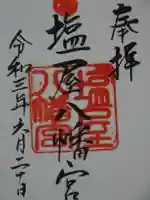 奉拝
塩屋八幡宮
令和三年六月二十日